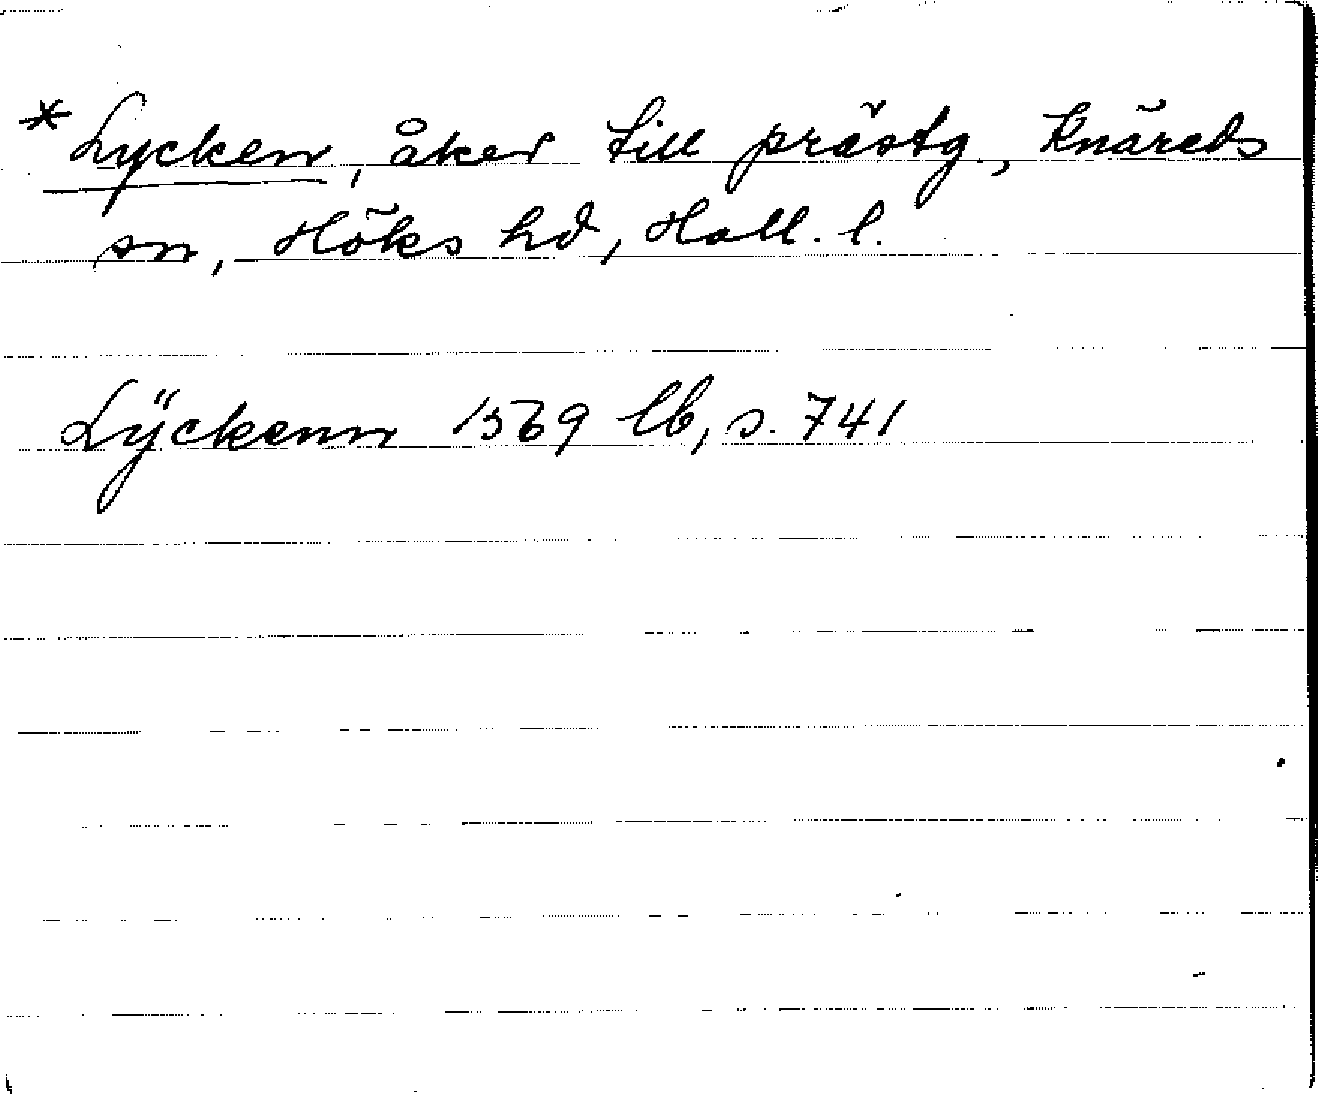 * Lycken, åker till prästg., Knäreds
sn, Höks hd, Hall. l.
Lÿckenn 1569 lb, s. 741